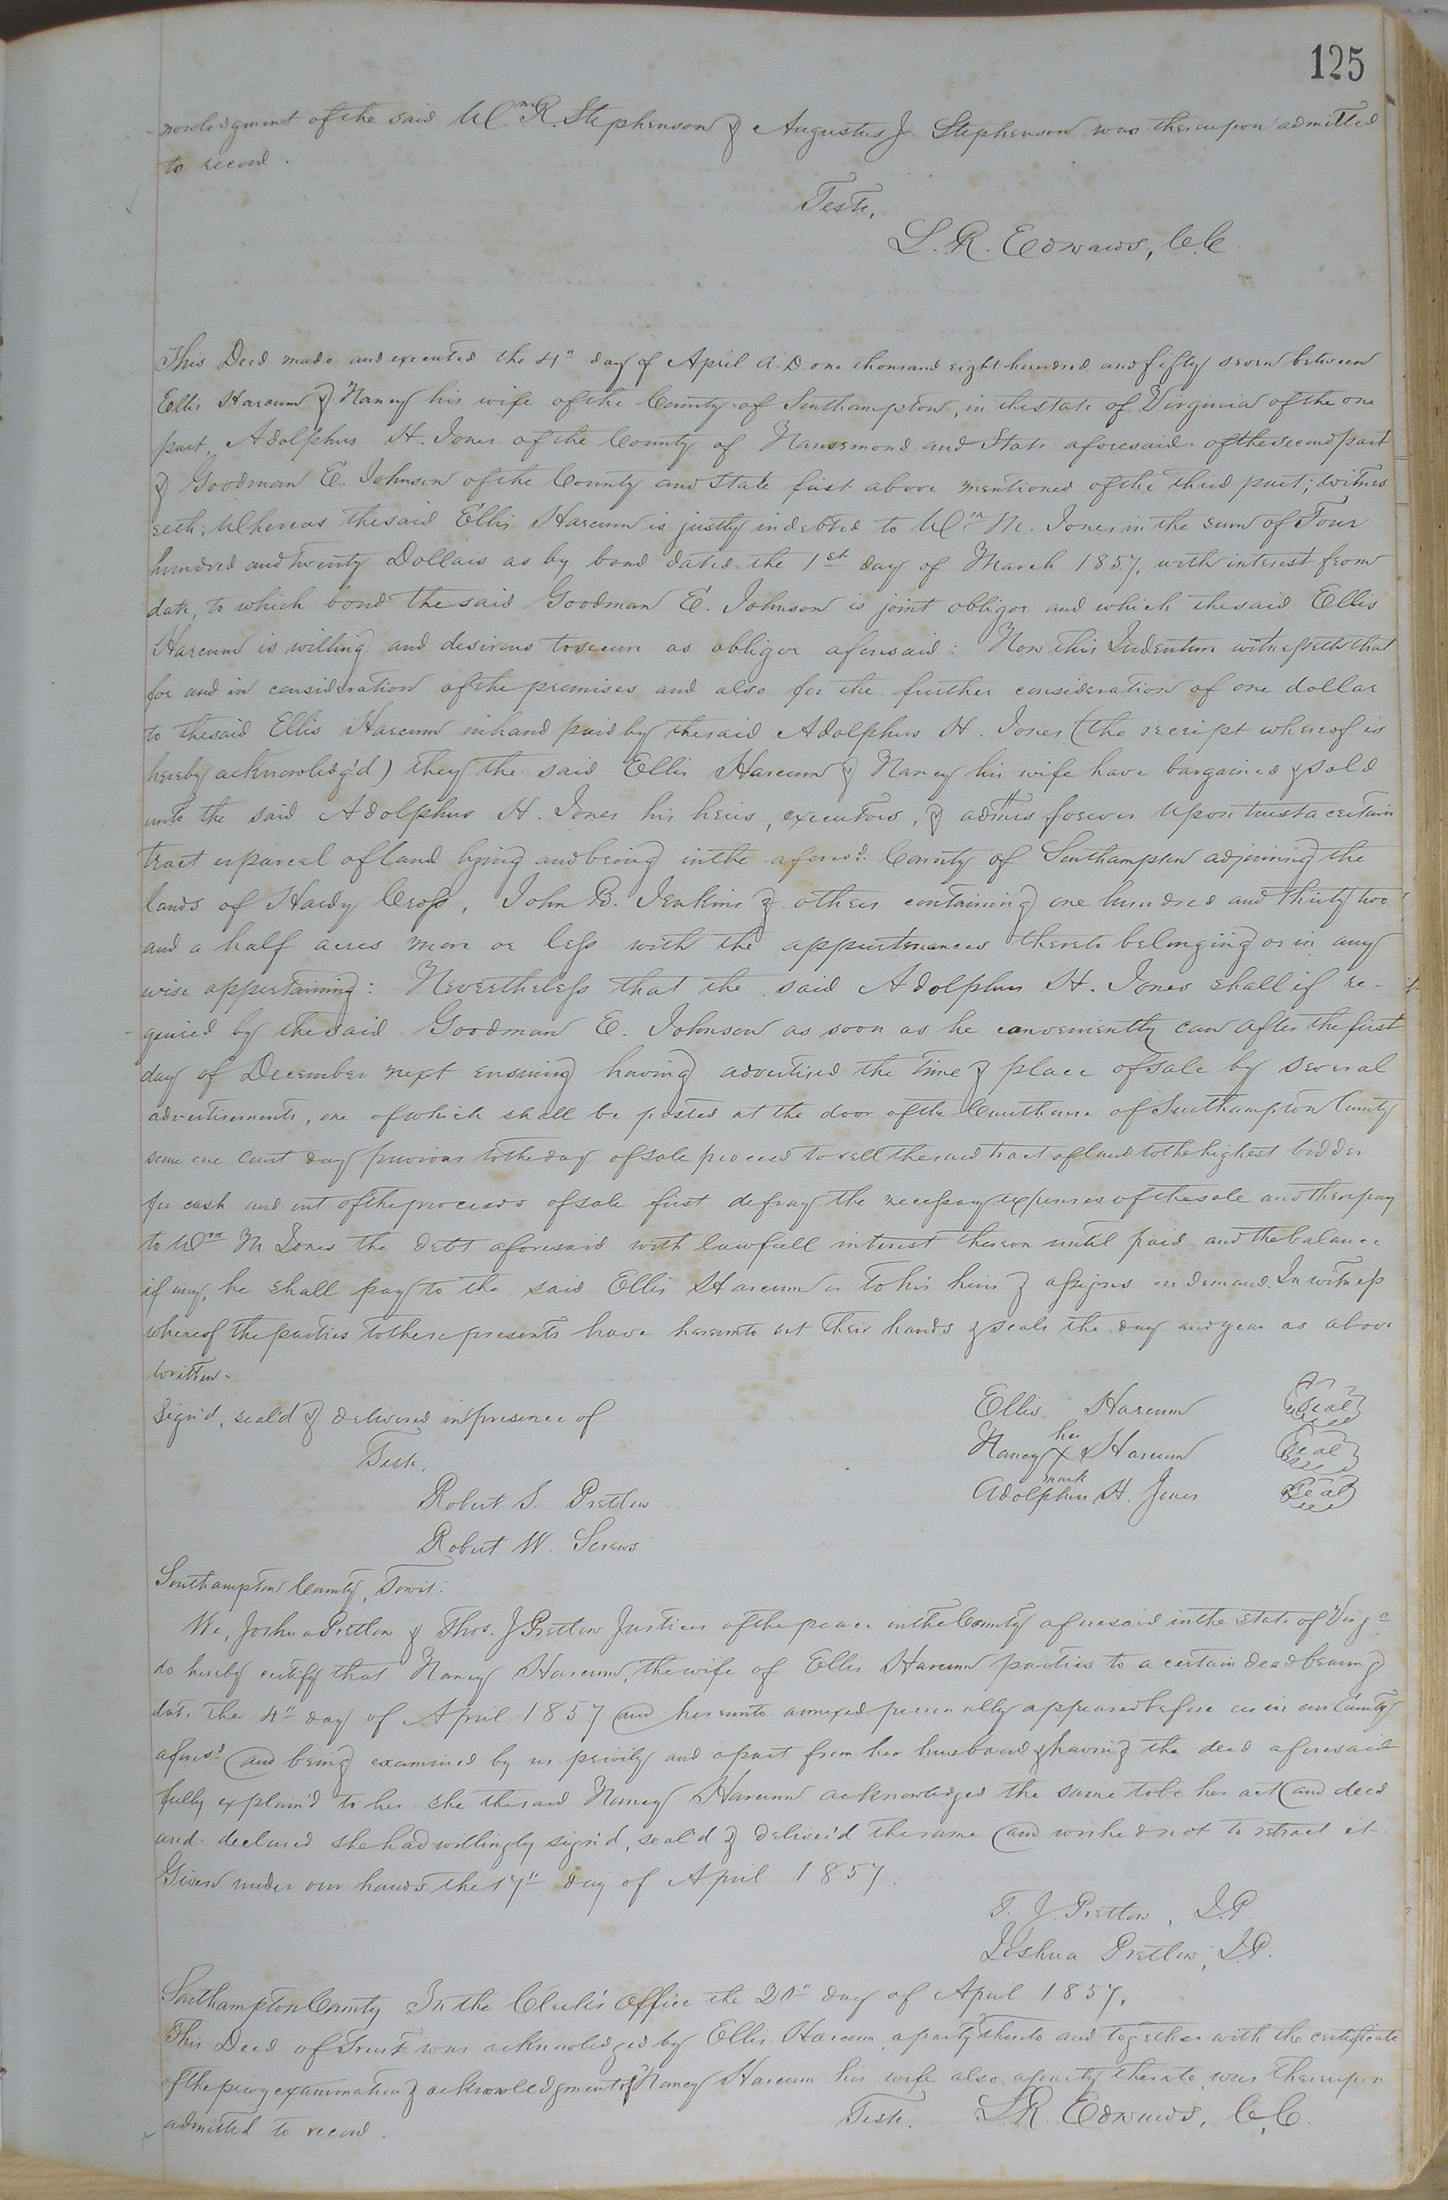 125
nowledgment of the said Wm. R. Stephenson & Augustus J. Stephenson was thereupon admitted
to record.
Teste,
L. R. Edwards, C.C.
This Deed made and executed the 4" day of April A.D. one thousand eight hundred and fifty seven between
Ellis Harcum & Nancy his wife of the County of Southampton, in the state of Virginia of the one
part, Adolphus H. Jones of the County of Nansemond and State aforesaid of the second part
& Goodman E. Johnson of the County and State first above mentioned of the third part; witnes
seth; Whereas the said Ellis Harcum is justly indebted to Wm M. Jones in the sum of Four
hundred and twenty Dollars as by bond dated the 1st day of March 1857, with interest from
date, to which bond the said Goodman E. Johnson is joint obligor and which the said Ellis
Harcum is willing and desirous to secure as obligor aforesaid: Now this Indenture witnesseth that
for and in consideration of the premises and also for the further consideration of one dollar
to the said Ellis Harcum in hand paid by the said Adolphus H. Jones (the receipt whereof is
hereby acknowledg'd) they the said Ellis Harcum & Nancy his wife have bargained & sold
unto the said Adolphus H. Jones his heirs, executors, & admtrs forever upon trust a certain
tract or parcel of land lying and being in the aforesd. County of Southampton adjoining the
lands of Hardy Cross, John B. Jenkins & others containing one hundred and thirty two
and a half acres more or less with the appurtenances thereto belonging or in any
wise appertaining: Nevertheless that the said Adolphus H. Jones shall if re-
quired by the said Goodman E. Johnson as soon as he conveniently can after the first
day of December next ensuing having advertised the time & place of sale by several
advertisements, one of which shall be posted at the door of the Courthouse of Southampton County
some one court day previous to the day of sale proceed to sell the said tract of land to the highest bidder
for cash and out of the proceeds of sale first defray the necessary expenses of the sale and then pay
to Wm M Jones the debt aforesaid with lawfull interest thereon until paid and the balance
if any, he shall pay to the said Ellis Harcum or to his heirs & assigns on demand. In witness
whereof the parties to these presents have hereunto set their hands & seals the day and year as above
written.
Sign'd, seal'd & delivered in presence of
Ellis Harcum Seal
Teste,
her
Nancy X Harcum Seal
mark
Robert S. Pretlow
Adolphus H. Jones Seal
Robert W. Screws
Southampton County, Towit:
We, Joshua Pretlow & Thos. J Pretlow Justices of the peace in the County aforesaid in the State of Virga
do hereby certify that Nancy Harcum, the wife of Ellis Harcum parties to a certain deed bearing
date the 4" day of April 1857 and hereunto annexed personally appeared before us in our County
aforesd and being examined by us privily and apart from her husband & having the deed aforesaid
fully explain'd to her she the said Nancy Harcum acknowledged the same to be her act and deed
and declared she had willingly sign'd, seal'd & deliver'd the same and wished not to retract it.
Given under our hands the 17" day of April 1857.
T. J. Pretlow, J.P.
Joshua Pretlow, J.P.
Southampton County In the Clerk's Office the 20" day of April 1857.
This Deed of Trust was acknowledged by Ellis Harcum, a party thereto and together with the certificate
of the privy examination & acknowledgment of Nancy Harcum his wife also a party thereto was thereupon
admitted to record.
Teste. L R Edwards, C.C.